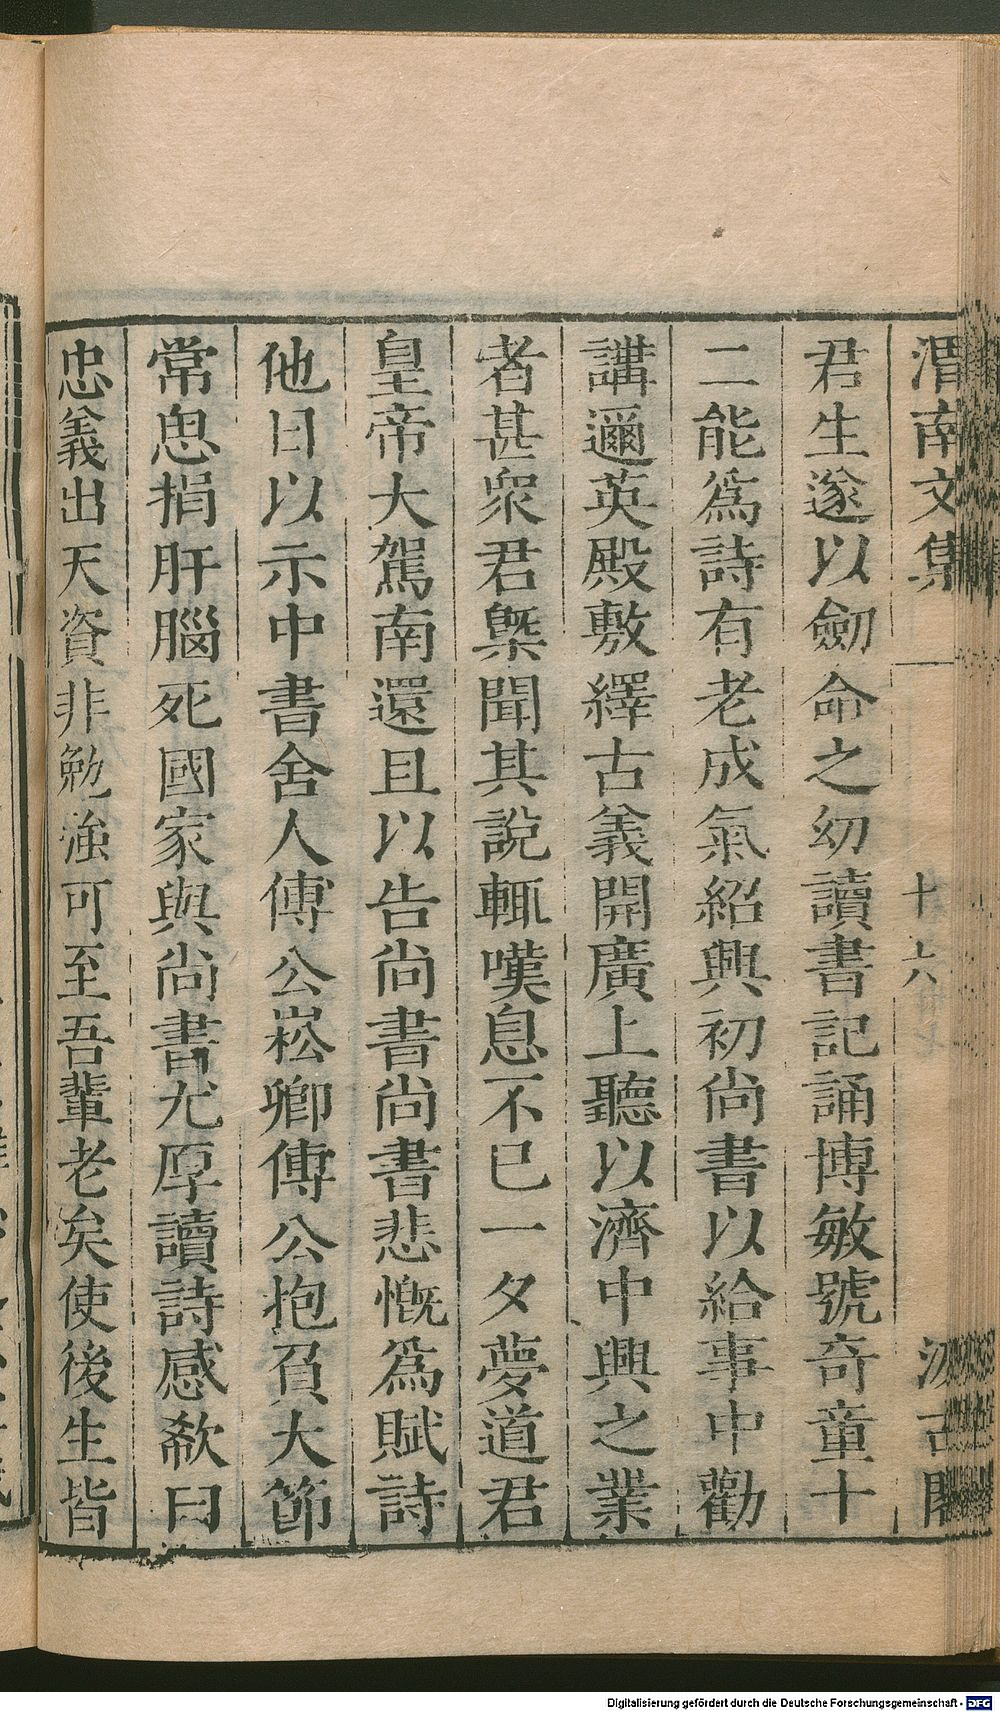 渭南文集
十六
汲古閣
君生遂以劒命之幼讀書記誦博敏號奇童十
二能爲詩有老成氣紹興初尚書以給事中勸
講邇英殿敷繹古義開廣上聽以濟中興之業
者甚衆君槩聞其說輒嘆息不已一夕夢道君
皇帝大駕南還且以告尚書尚書悲慨爲賦詩
他日以示中書舍人傅公崧卿傅公抱負大節
常思捐肝腦死國家與尚書尤厚讀詩感欷曰
忠義出天資非勉強可至吾輩老矣使後生皆
Digitalisierung gefördert durch die Deutsche Forschungsgemeinschaft - DFG